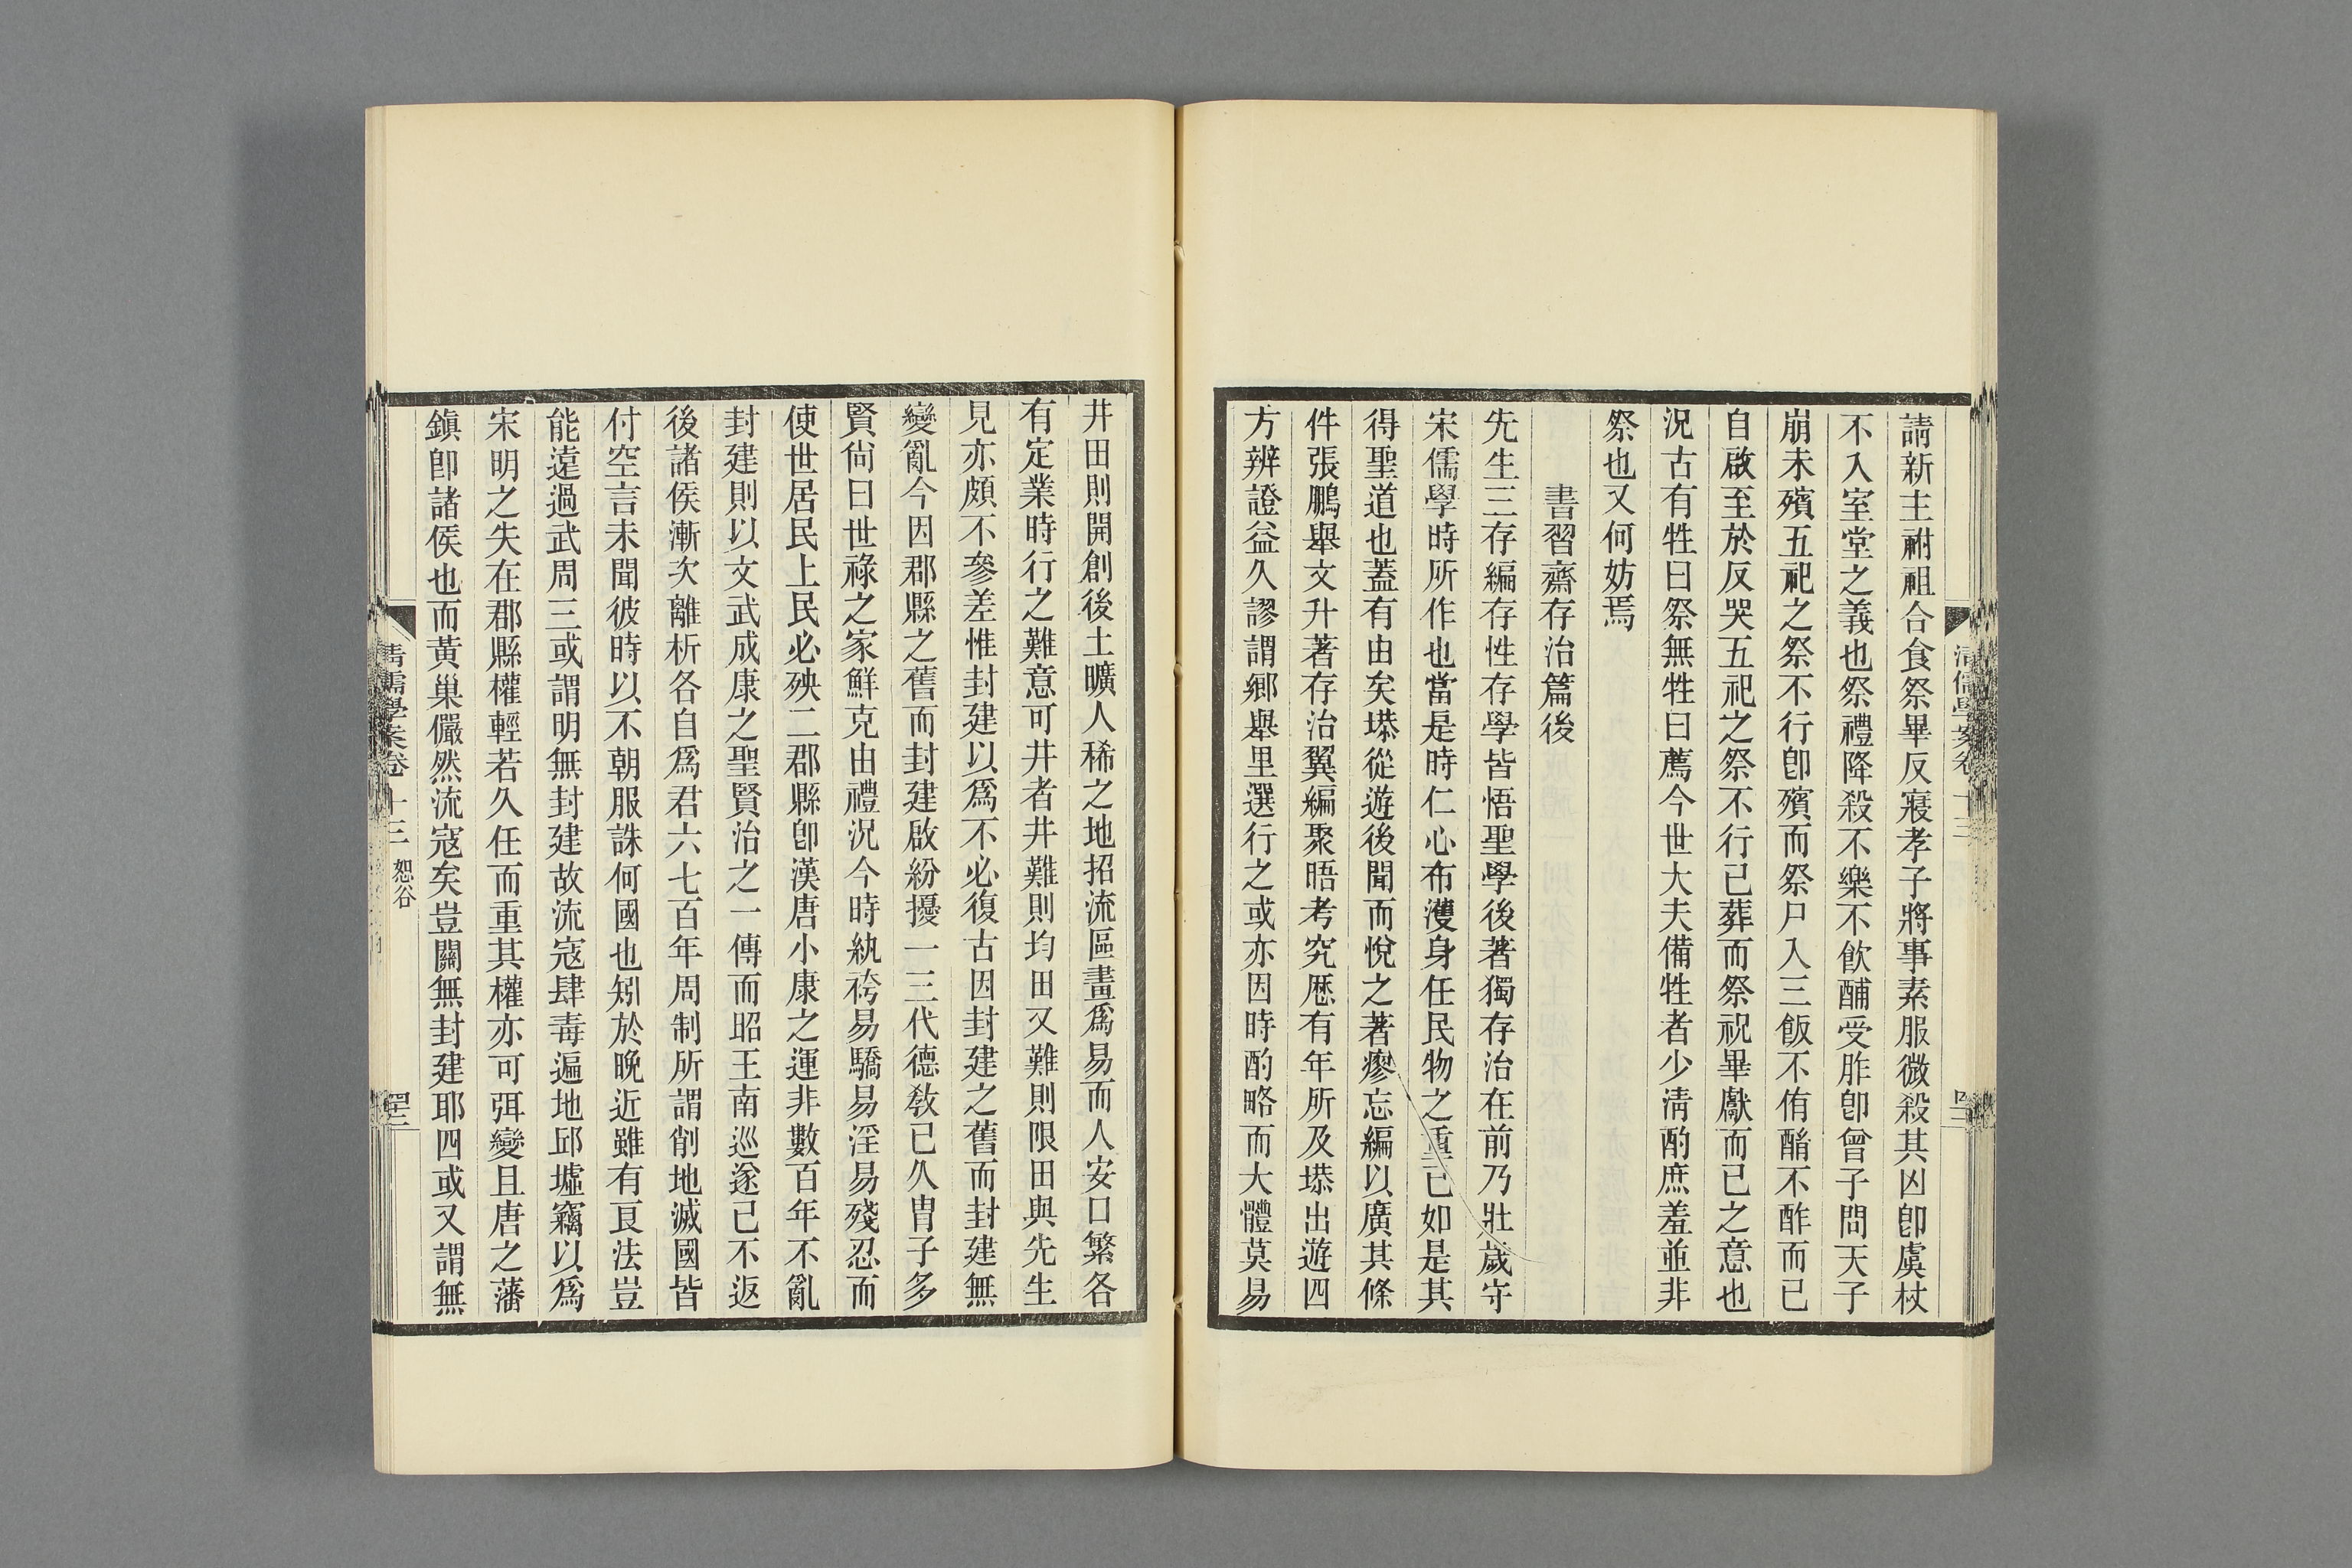 請新主祔祖合食祭畢反寢孝子將事素服微殺其凶卽虞杖
不入室堂之義也祭禮降殺不樂不飲酺受胙卽曾子問天子
崩未殯五祀之祭不行卽殯而祭尸入三飯不侑酳不酢而已
自啟至於反哭五祀之祭不行已葬而祭祝畢獻而已之意也
況古有牲曰祭無牲曰薦今世大夫備牲者少淸酌庶羞並非
祭也又何妨焉
書習齋存治篇後
先生三存編存性存學皆悟聖學後著獨存治在前乃壯歲守
宋儒學時所作也當是時仁心布濩身任民物之重已如是其
得聖道也蓋有由矣塨從遊後聞而悅之著瘳忘編以廣其條
件張鵬舉文升著存治翼編聚晤考究厯有年所及塨出遊四
方辨證益久謬謂鄉舉里選行之或亦因時酌略而大體莫易
井田則開創後土曠人稀之地招流區畫爲易而人安口繁各
有定業時行之難意可井者井難則均田又難則限田與先生
見亦頗不參差惟封建以爲不必復古因封建之舊而封建無
變亂今因郡縣之舊而封建啟紛擾一三代德敎已久胄子多
賢尙曰世祿之家鮮克由禮況今時紈袴易驕易淫易殘忍而
使世居民上民必殃二郡縣卽漢唐小康之運非數百年不亂
封建則以文武成康之聖賢治之一傳而昭王南巡遂已不返
後諸侯漸次離析各自爲君六七百年周制所謂削地滅國皆
付空言未聞彼時以不朝服誅何國也矧於晩近雖有良法豈
能遠過武周三或謂明無封建故流寇肆毒遍地邱墟竊以爲
宋明之失在郡縣權輕若久任而重其權亦可弭變且唐之藩
鎭卽諸侯也而黃巢儼然流寇矣豈關無封建耶四或又謂無
清儒學案卷十三 恕谷